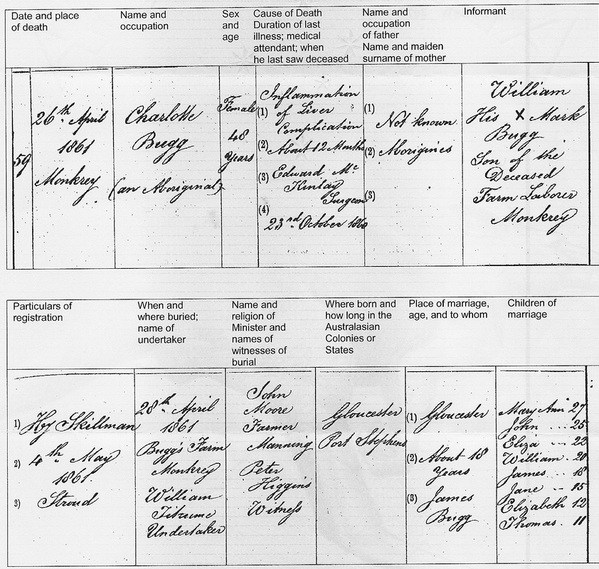 Date and place
of death
Name and
occupation
Sex
and
age
Cause of Death
Duration of last
illness; medical
attendant; when
he last saw deceased
Name and
occupation
of father
Name and maiden
surname of mother
Informant
59
26th April
1861
Monkrey
Charlotte
Bugg
(an Aboriginal)
Female
48
Years
Inflammation
(1) of Liver
Complication
(2) About 12 Months
(3) Edward Mc
Kinlay
Surgeon
(4)
23rd October 1860
(1)
Not known
(2) Aborigines
(3)
William
His X Mark
Bugg
Son of the
Deceased
Farm Laborer
Monkrey
Particulars of
registration
When and
where buried;
name of
undertaker
Name and
religion of
Minister and
names of
witnesses of
burial
Where born and
how long in the
Australasian
Colonies or
States
Place of marriage,
age, and to whom
Children of
marriage
1) Hy Skillman
2) 4th May
1861
3) Stroud
28th April
1861
Bugg's Farm
Monkrey
William
Undertaker
John
Moore
Farmer
Manning
Peter
Higgins
Witness
Gloucester
Port Stephens
(1) Gloucester
(2) About 18
Years
(3) James
Bugg
Mary Ann 27
John ... 25
Eliza .. 23
William . 20
James .. 18
Jane .. 15
Elizabeth 12
Thomas . 11